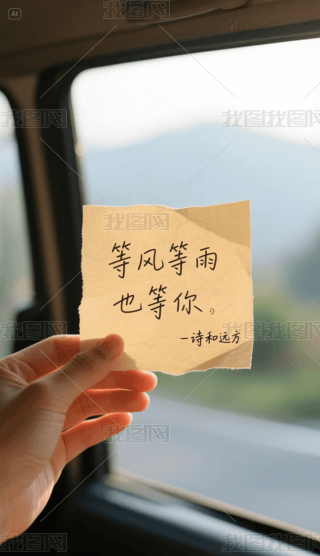 AI
等风等雨
也等你。
—诗和远方
我图网
我图网
我图网
我图网
我图网
我图网
我图网
我图网
我图网
我图网